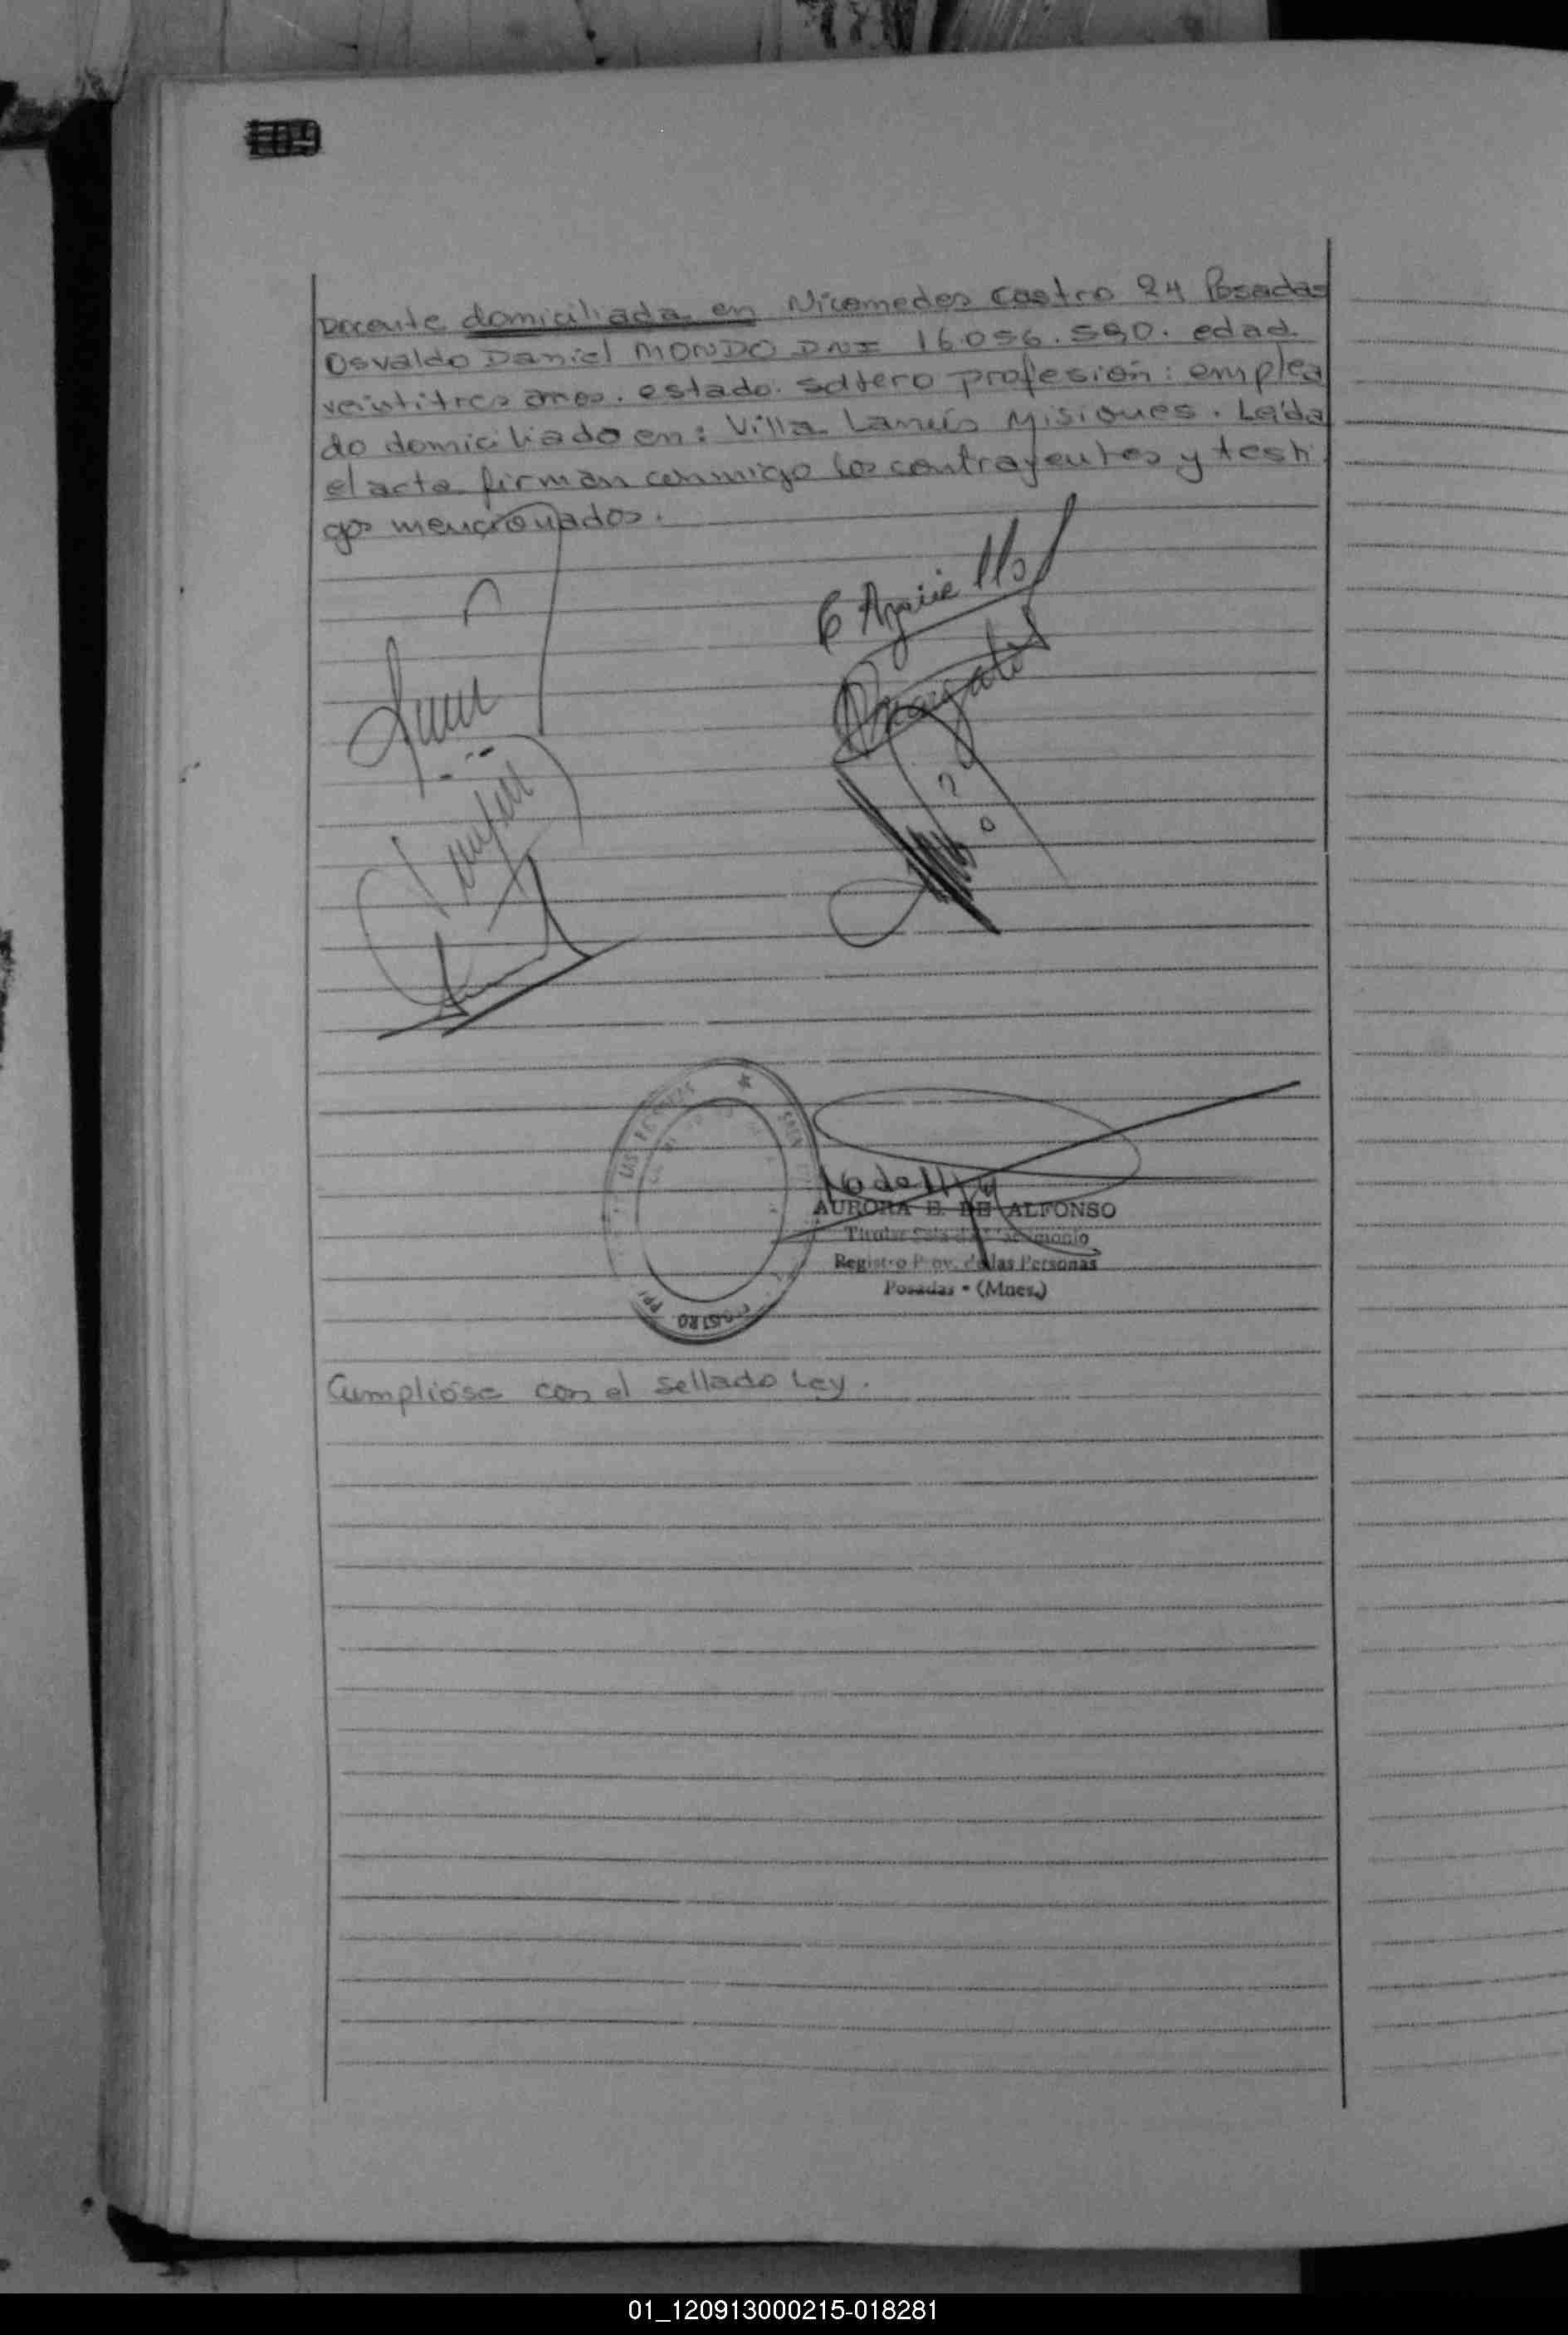 109
Docente domiciliada en Nicomedes Castro 24 Posadas
Osvaldo Daniel MONDO DNI 16.056.590. edad
veintitres años. estado. soltero profesión: emplea
do domiciliado en: Villa Lanús Misiones. Leída
el acta firman conmigo los contrayentes y testi
gos mencionados.
AURORA E. DE ALFONSO
Titular Sala de Matrimonio
Registro Prov. de las Personas
Posadas - (Mnes.)
LAS PERSONAS
REGISTRO
Cumplióse con el sellado Ley.
01_120913000215-018281